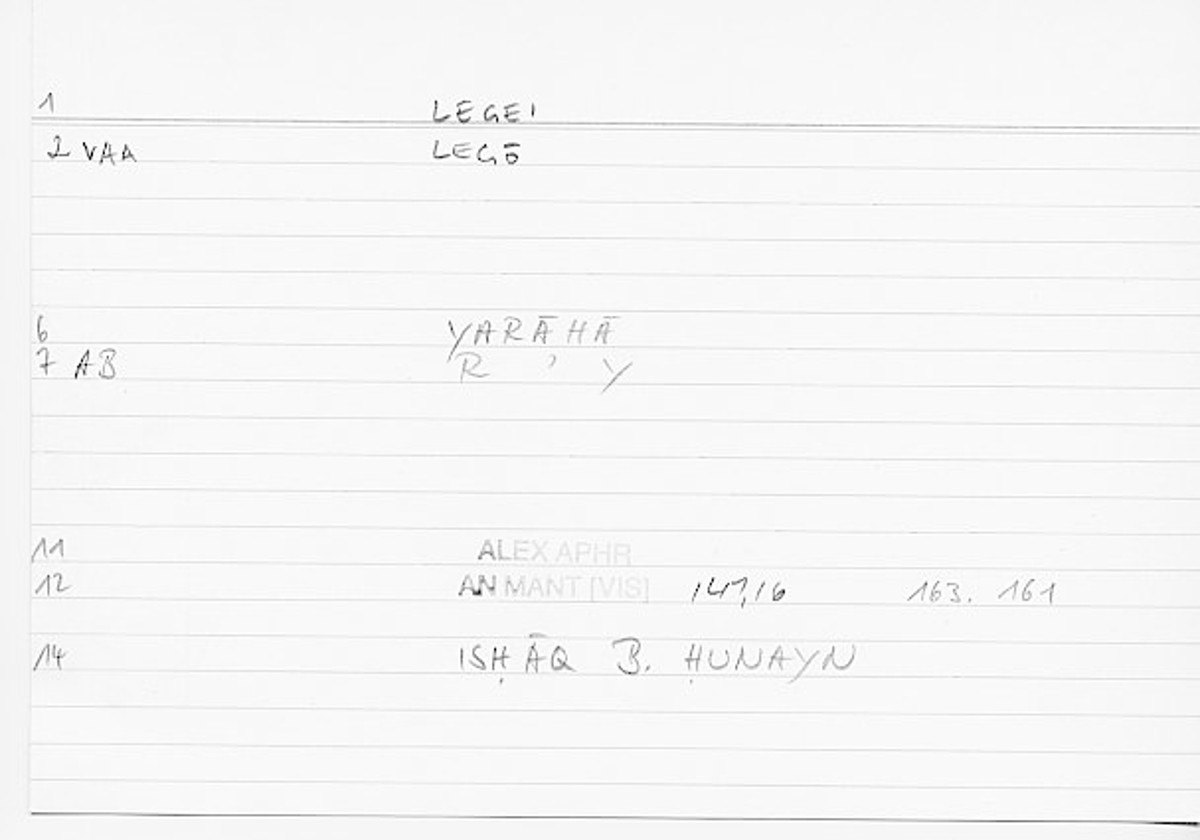 1 LEGEI
2 VAA LEGŌ
6 YARĀHĀ
7 AB R ʾ Y
11 ALEX APHR
12 AN MANT [VIS] 147,16 163. 161
14 ISḤĀQ B. ḤUNAYN